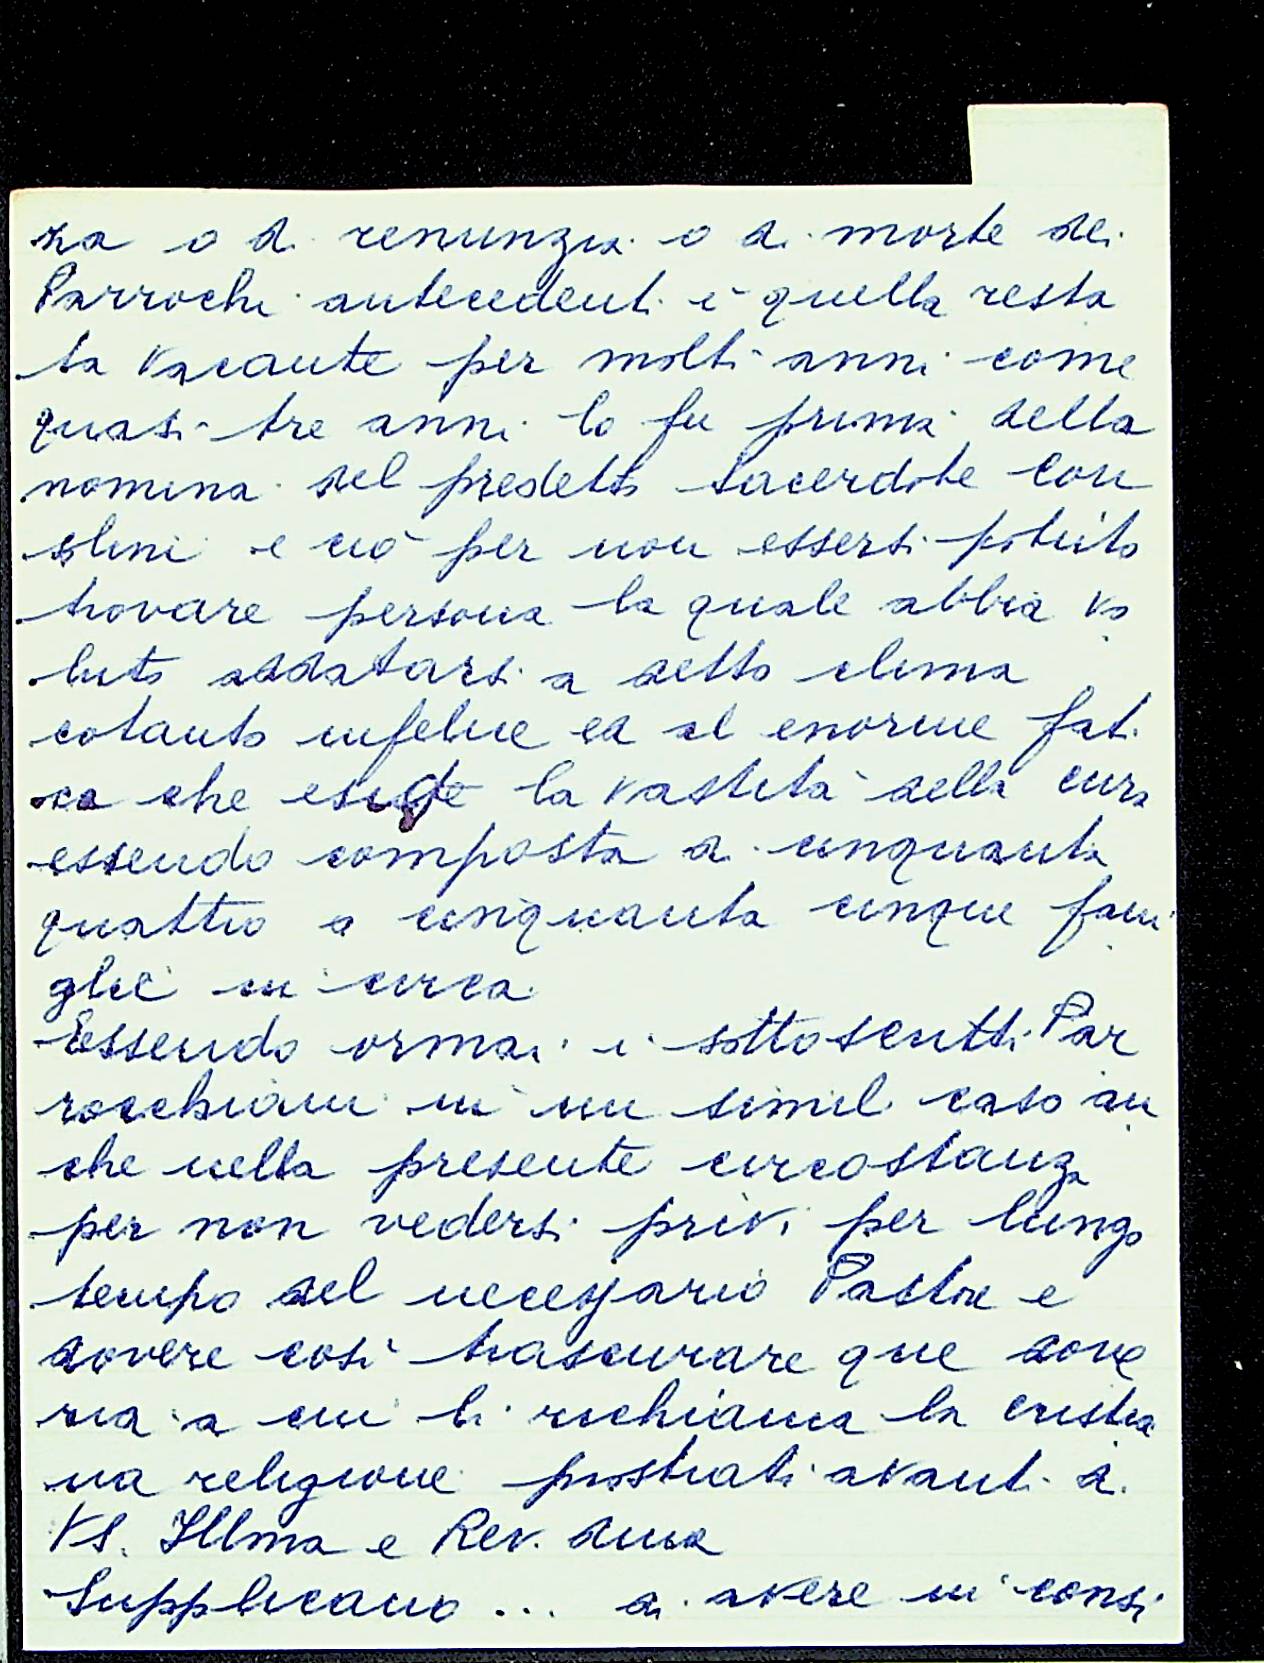 za o di renunzia o di morte dei
Parrochi antecedenti è quella resta
ta vacante per molti anni come
quasi tre anni lo fu prima della
nomina del predetto sacerdote Con
slini e ciò per non essersi potuto
trovare persona la quale abbia vo
luto addatarsi a detto clima
cotanto infelice ed al enorme fati
ca che esige la vastità della cura
essendo composta di cinquanta
quattro a cinquanta cinque fami
glie in circa
Essendo ormai i sottoscritti Par
rocchiani in un simil caso an
che nella presente circostanza
per non vedersi privi per lungo
tempo del necessario Pastore e
dovere così trascurare que dove
ria a cui li richiama la cristia
na religione prostrati avanti di
VS. Illma e Rev. dma
Supplicano ... di avere in consi